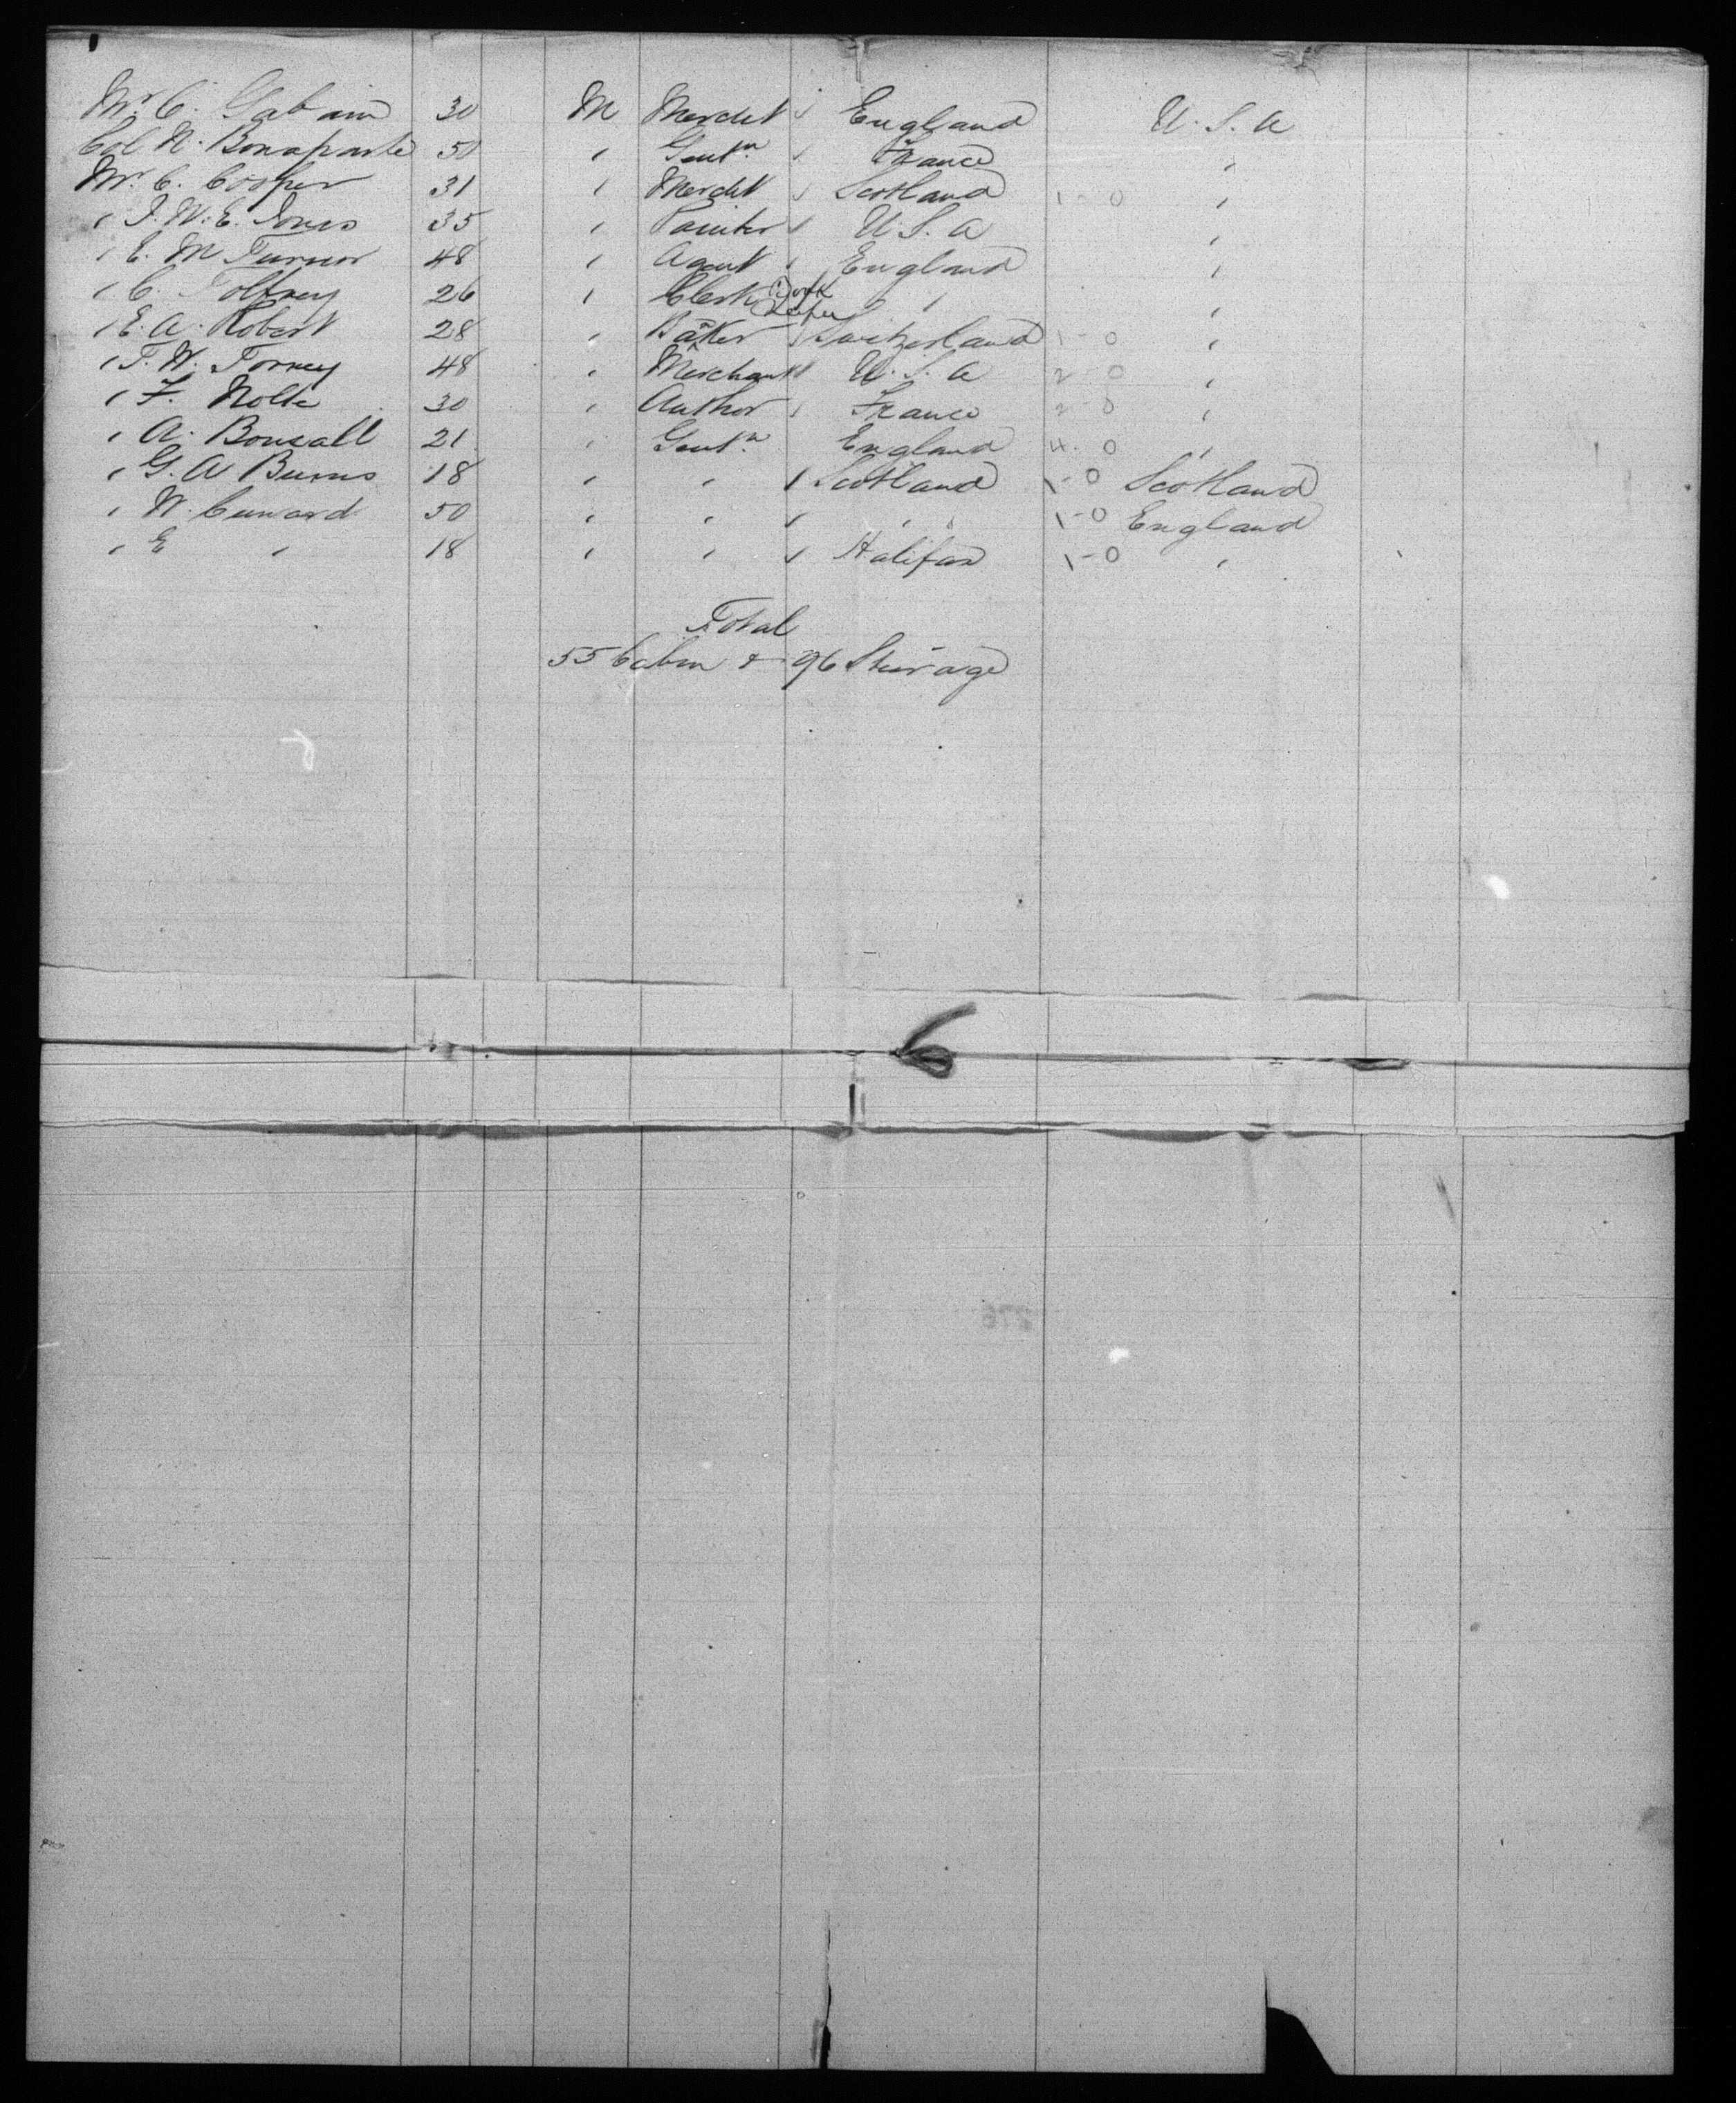 Mr. C. Gabain 30 M Mercht England U. S. A
Col N. Bonaparte 50 " Gentn France "
Mr. C. Cooper 31 " Mercht Scotland 1-0 "
" J. W. E. Jones 35 " Painter U. S. A "
" E. M Turner 48 " Agent England "
" C. Tolfrey 26 " Clerk " "
" E. A. Robert 28 " Baker Switzerland 1-0 "
" T. W. Torrey 48 " Merchant U. S. A 2-0 "
" F. Nolte 30 " Author France 2-0 "
" A. Bonsall 21 " Gentn England 4-0 "
" G. A Burns 18 " " Scotland 1-0 Scotland
" W. Cunard 50 " " " 1-0 England
" E " 18 " " Halifax 1-0 "
Total
55 Cabin & 96 Steerage